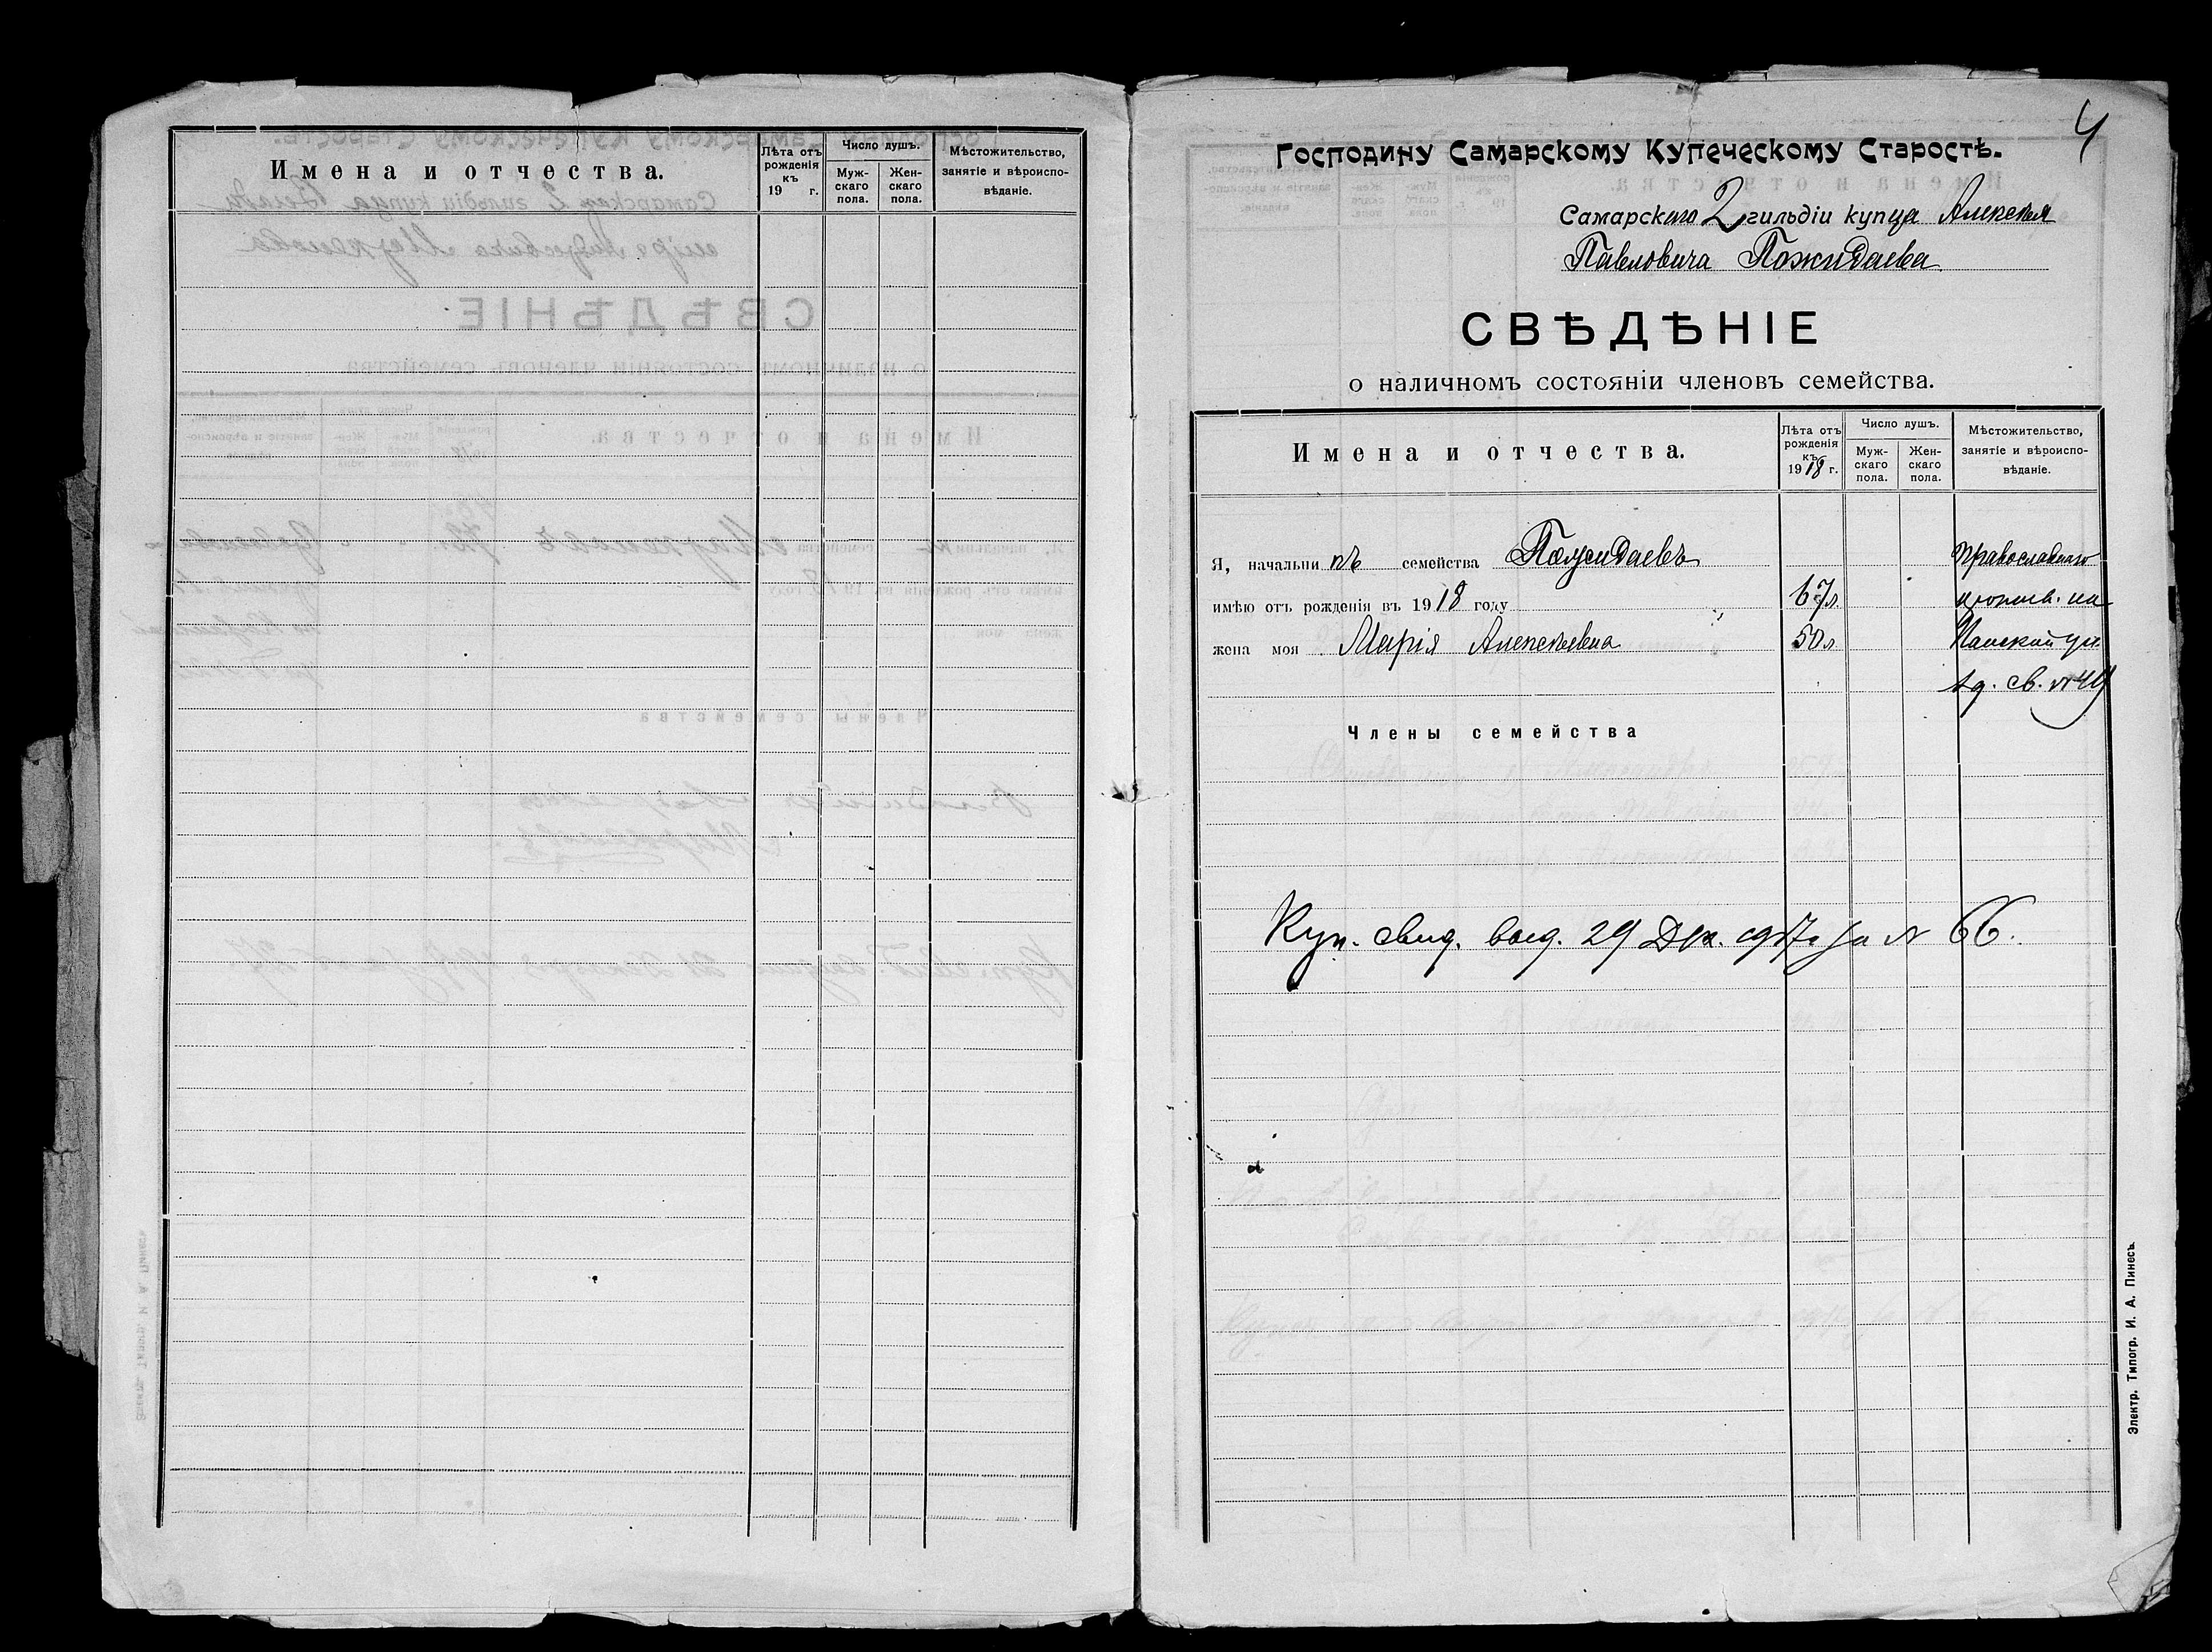 Имена и отчества.
Лѣта отъ рожденія къ 19 г.
Число душъ.
Муж-скаго пола.
Жен-скаго пола.
Мѣстожительство, занятіе и вѣроиспо-вѣданіе.
4
Господину Самарскому Купеческому Старостѣ.
Самарскаго 2 гильдіи купца Алексѣя
Павловича Пожидаева
СВѢДѢНІЕ
о наличномъ состояніи членовъ семейства.
Имена и отчества.
Лѣта отъ рожденія къ 1918 г.
Число душъ.
Муж-скаго пола.
Жен-скаго пола.
Мѣстожительство, занятіе и вѣроиспо-вѣданіе.
Я, начальникъ семейства Пожидаевъ православнаго
имѣю отъ рожденія въ 1918 году 67 л. на
жена моя Марія Алексѣевна 50 л. Панской ул.
св. №
Члены семейства
Куп. свид. выд. 29 Дек. 1917 г за № 66.
Электр. Типогр. И. А. Пинесъ.